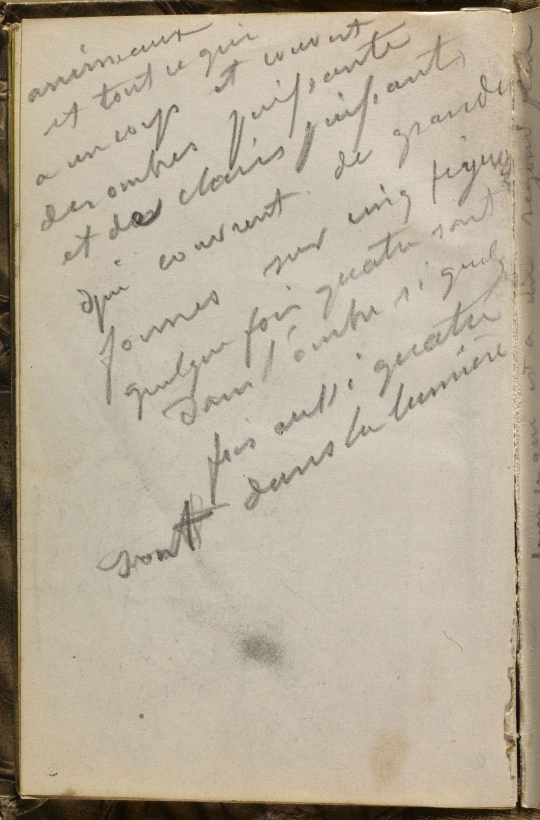 animeaux
et tout ce qui
a un corp et couvert
des ombres puissante
et des clairs puissants
qui couvrent de grandes
formes sur cinq figures
quelque fois quatre sont
dans l'ombre si quelq
fois aussi quatre
sont dans la lumière